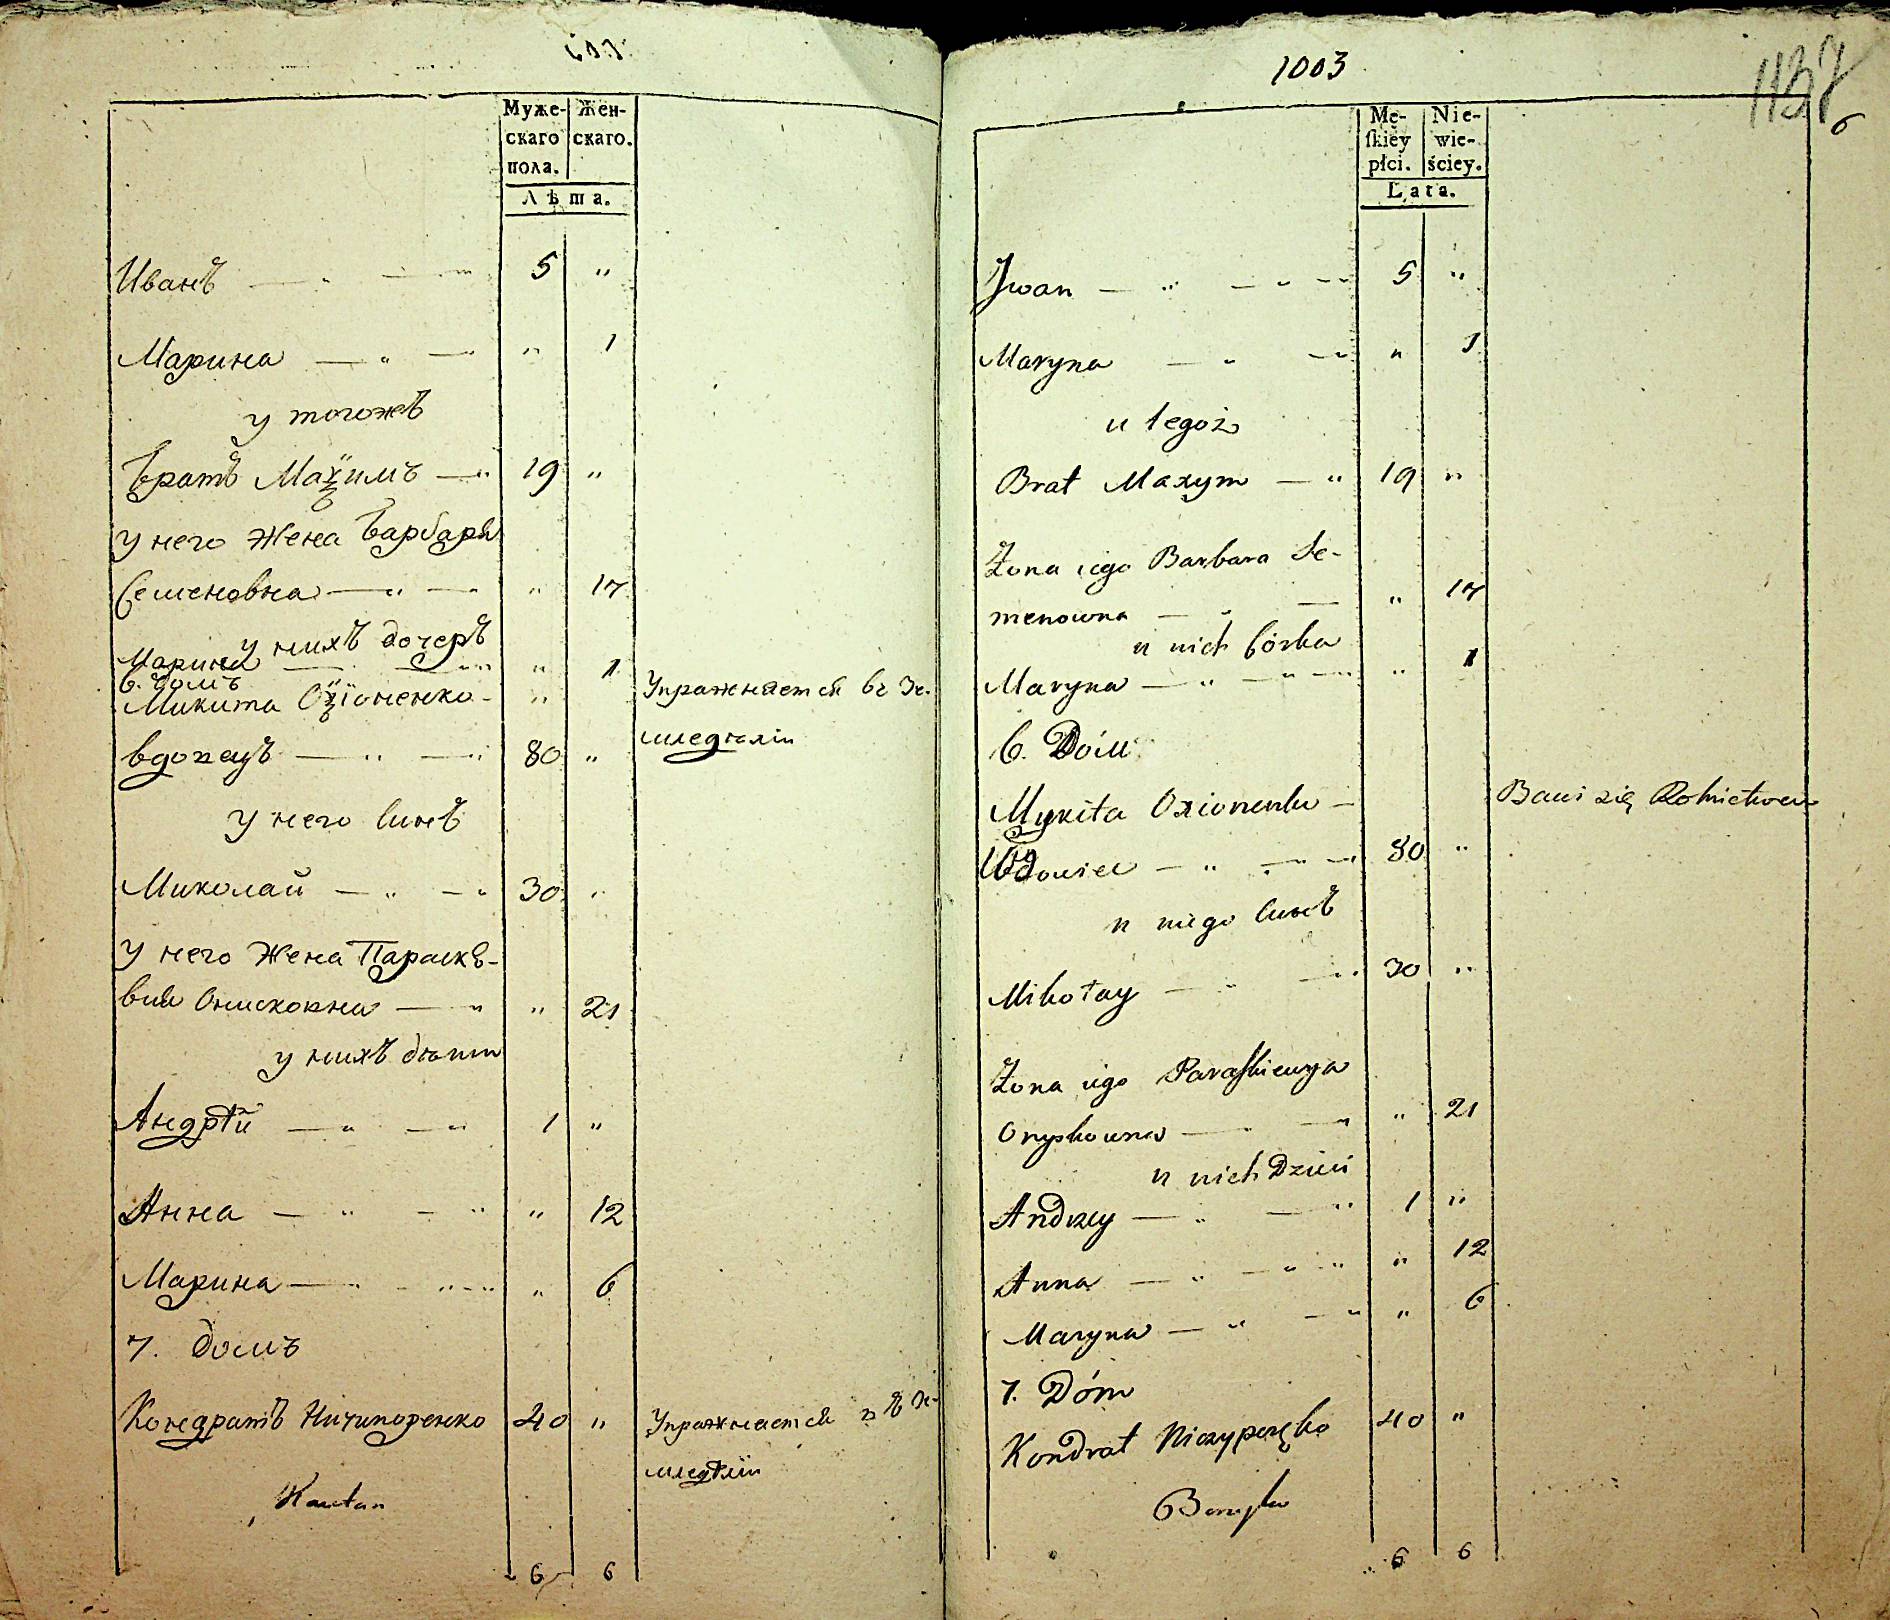 Муже- Жен-
скаго скаго.
пола.
Лѣта.
Иванъ — " — 5 "
Марина — " — " 1
у тогожъ
Братъ Маѯимъ — " 19 "
у него Жена Варвара
Семеновна — " — " 17
у нихъ дочеръ
Марина — " 1
6. домъ
Микита Оѯіоненко - " Упражняется въ Зе-
вдовецъ — " — 80 " мледѣліи
у него Синъ
Миколай — " — " 30 "
у него Жена Параскѣ-
вия Онисковна — " " 21
у нихъ дѣти
Андрѣй — " — " 1 "
Анна — " — " " 12
Марина — " - " " 6
7. домъ
Кондратъ Ничипоренко 40 " Упражнается
мледѣліи
6 6
1003
1137
6
Mę- Nie-
ſkiey wie-
płci. ściey.
Lata.
Jwan — " — " 5 "
Maryna — " — " " 1
u tegoż
Brat Maxym — " 19 "
Żona iego Barbara Se-
menowna — " — " 17
u nich Córka
Maryna — " — " " 1
6. Dóm
Mykita Oxionenko — Bawi się Rolnictwem
Wdowiec — " — " 80 "
u niego Синъ
Mikołay — " — " 30 "
Żona iego Paraſkiewya
Onyskowna — " — " " 21
u nich Dzieci
Andrzey — " — " 1 "
Anna — " — " " 12
Maryna — " — " " 6
7. Dóm
Kondrat Niczyporęko 40 "
6 6